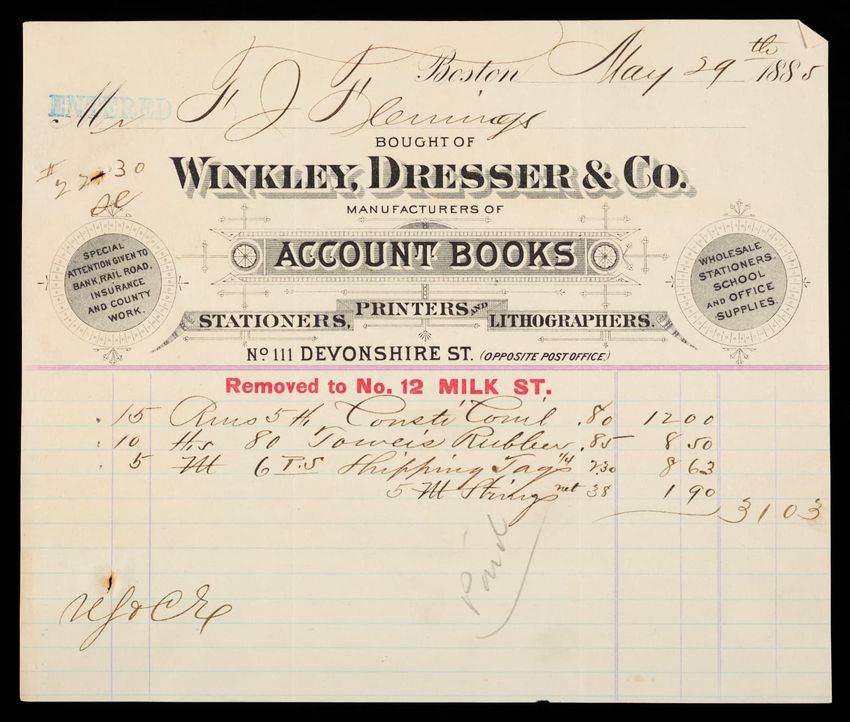 Boston May 29th 1885
ENTERED
Mr F J Flemings
BOUGHT OF
$22.30
WINKLEY, DRESSER & Co.
MANUFACTURERS OF
ACCOUNT BOOKS
SPECIAL
ATTENTION GIVEN TO
BANK, RAIL ROAD,
INSURANCE
AND COUNTY
WORK.
WHOLESALE
STATIONERS.
SCHOOL
AND OFFICE
SUPPLIES.
STATIONERS, PRINTERS AND LITHOGRAPHERS.
No 111 DEVONSHIRE ST. (OPPOSITE POST OFFICE)
Removed to No. 12 MILK ST.
15 Rms 5 .80 12 00
10 80 Rubber .85 8 50
5 M 6 P.S Shipping Tags 2.30 8 63
5 M Strings net 38 1 90
31 03
Paid